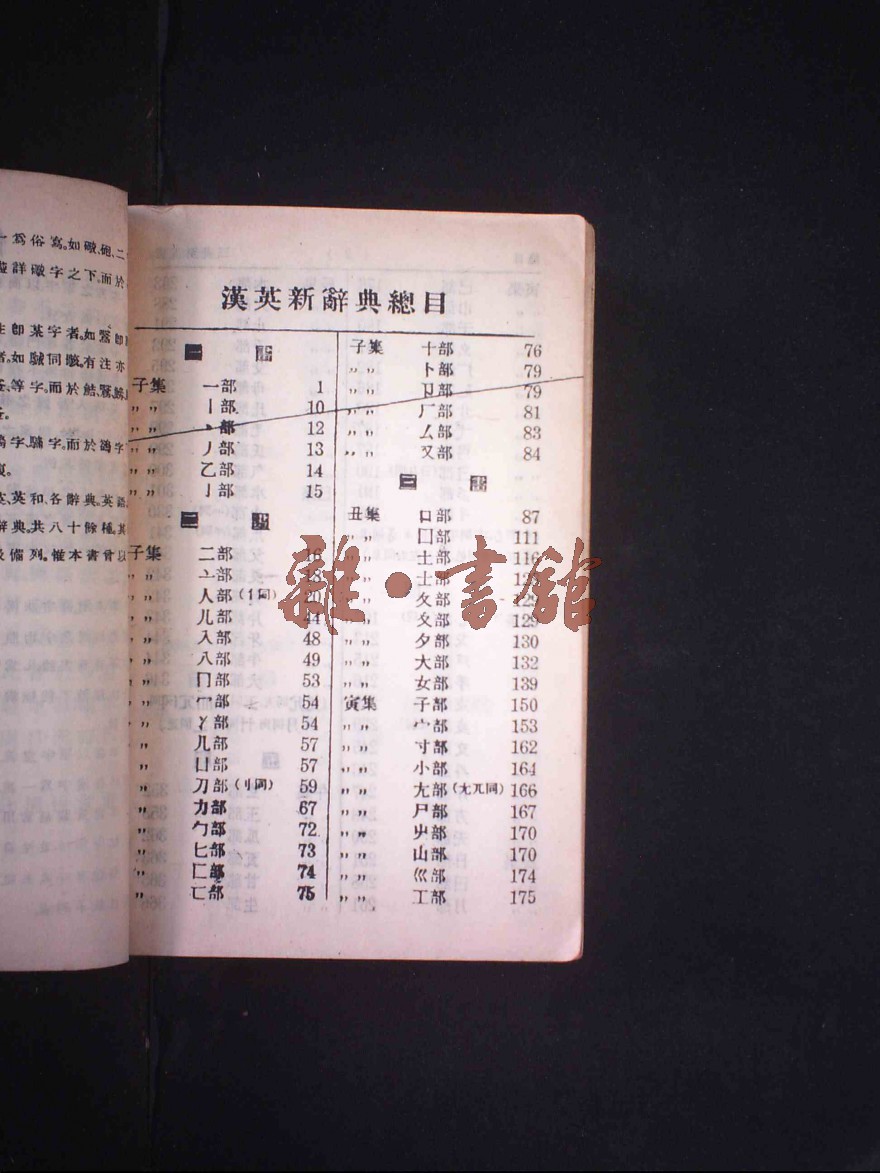 一爲俗寫。如礮、砲、二
詳礮字之下。而於
卽某字者。如
者。如
等字。而於
字。而於
英、英和、各辭典。英語
辭典。共八十餘種。其
備列。惟本書曾以
漢英新辭典總目
一畫
子集 一部 1
〃〃 丨部 10
〃〃 丶部 12
〃〃 丿部 13
〃〃 乙部 14
〃〃 亅部 15
二畫
子集 二部 16
〃〃 亠部 18
〃〃 人部(亻同) 20
〃〃 儿部 44
〃〃 入部 48
〃〃 八部 49
〃〃 冂部 53
〃〃 冖部 54
〃〃 冫部 54
〃 几部 57
〃 凵部 57
〃 刀部(刂同) 59
〃 力部 67
〃 勹部 72
〃 匕部 73
〃 匚部 74
〃 匸部 75
子集 十部 76
〃〃 卜部 79
〃〃 卩部 79
〃〃 厂部 81
〃〃 厶部 83
〃〃 又部 84
三畫
丑集 口部 87
〃〃 囗部 111
〃〃 土部 116
〃〃 士部
〃〃 夂部
〃〃 夊部 129
〃〃 夕部 130
〃〃 大部 132
〃〃 女部 139
寅集 子部 150
〃〃 宀部 153
〃〃 寸部 162
〃〃 小部 164
〃〃 尢部(尢兀同) 166
〃〃 尸部 167
〃〃 屮部 170
〃〃 山部 170
〃〃 巛部 174
〃〃 工部 175
雜·書館